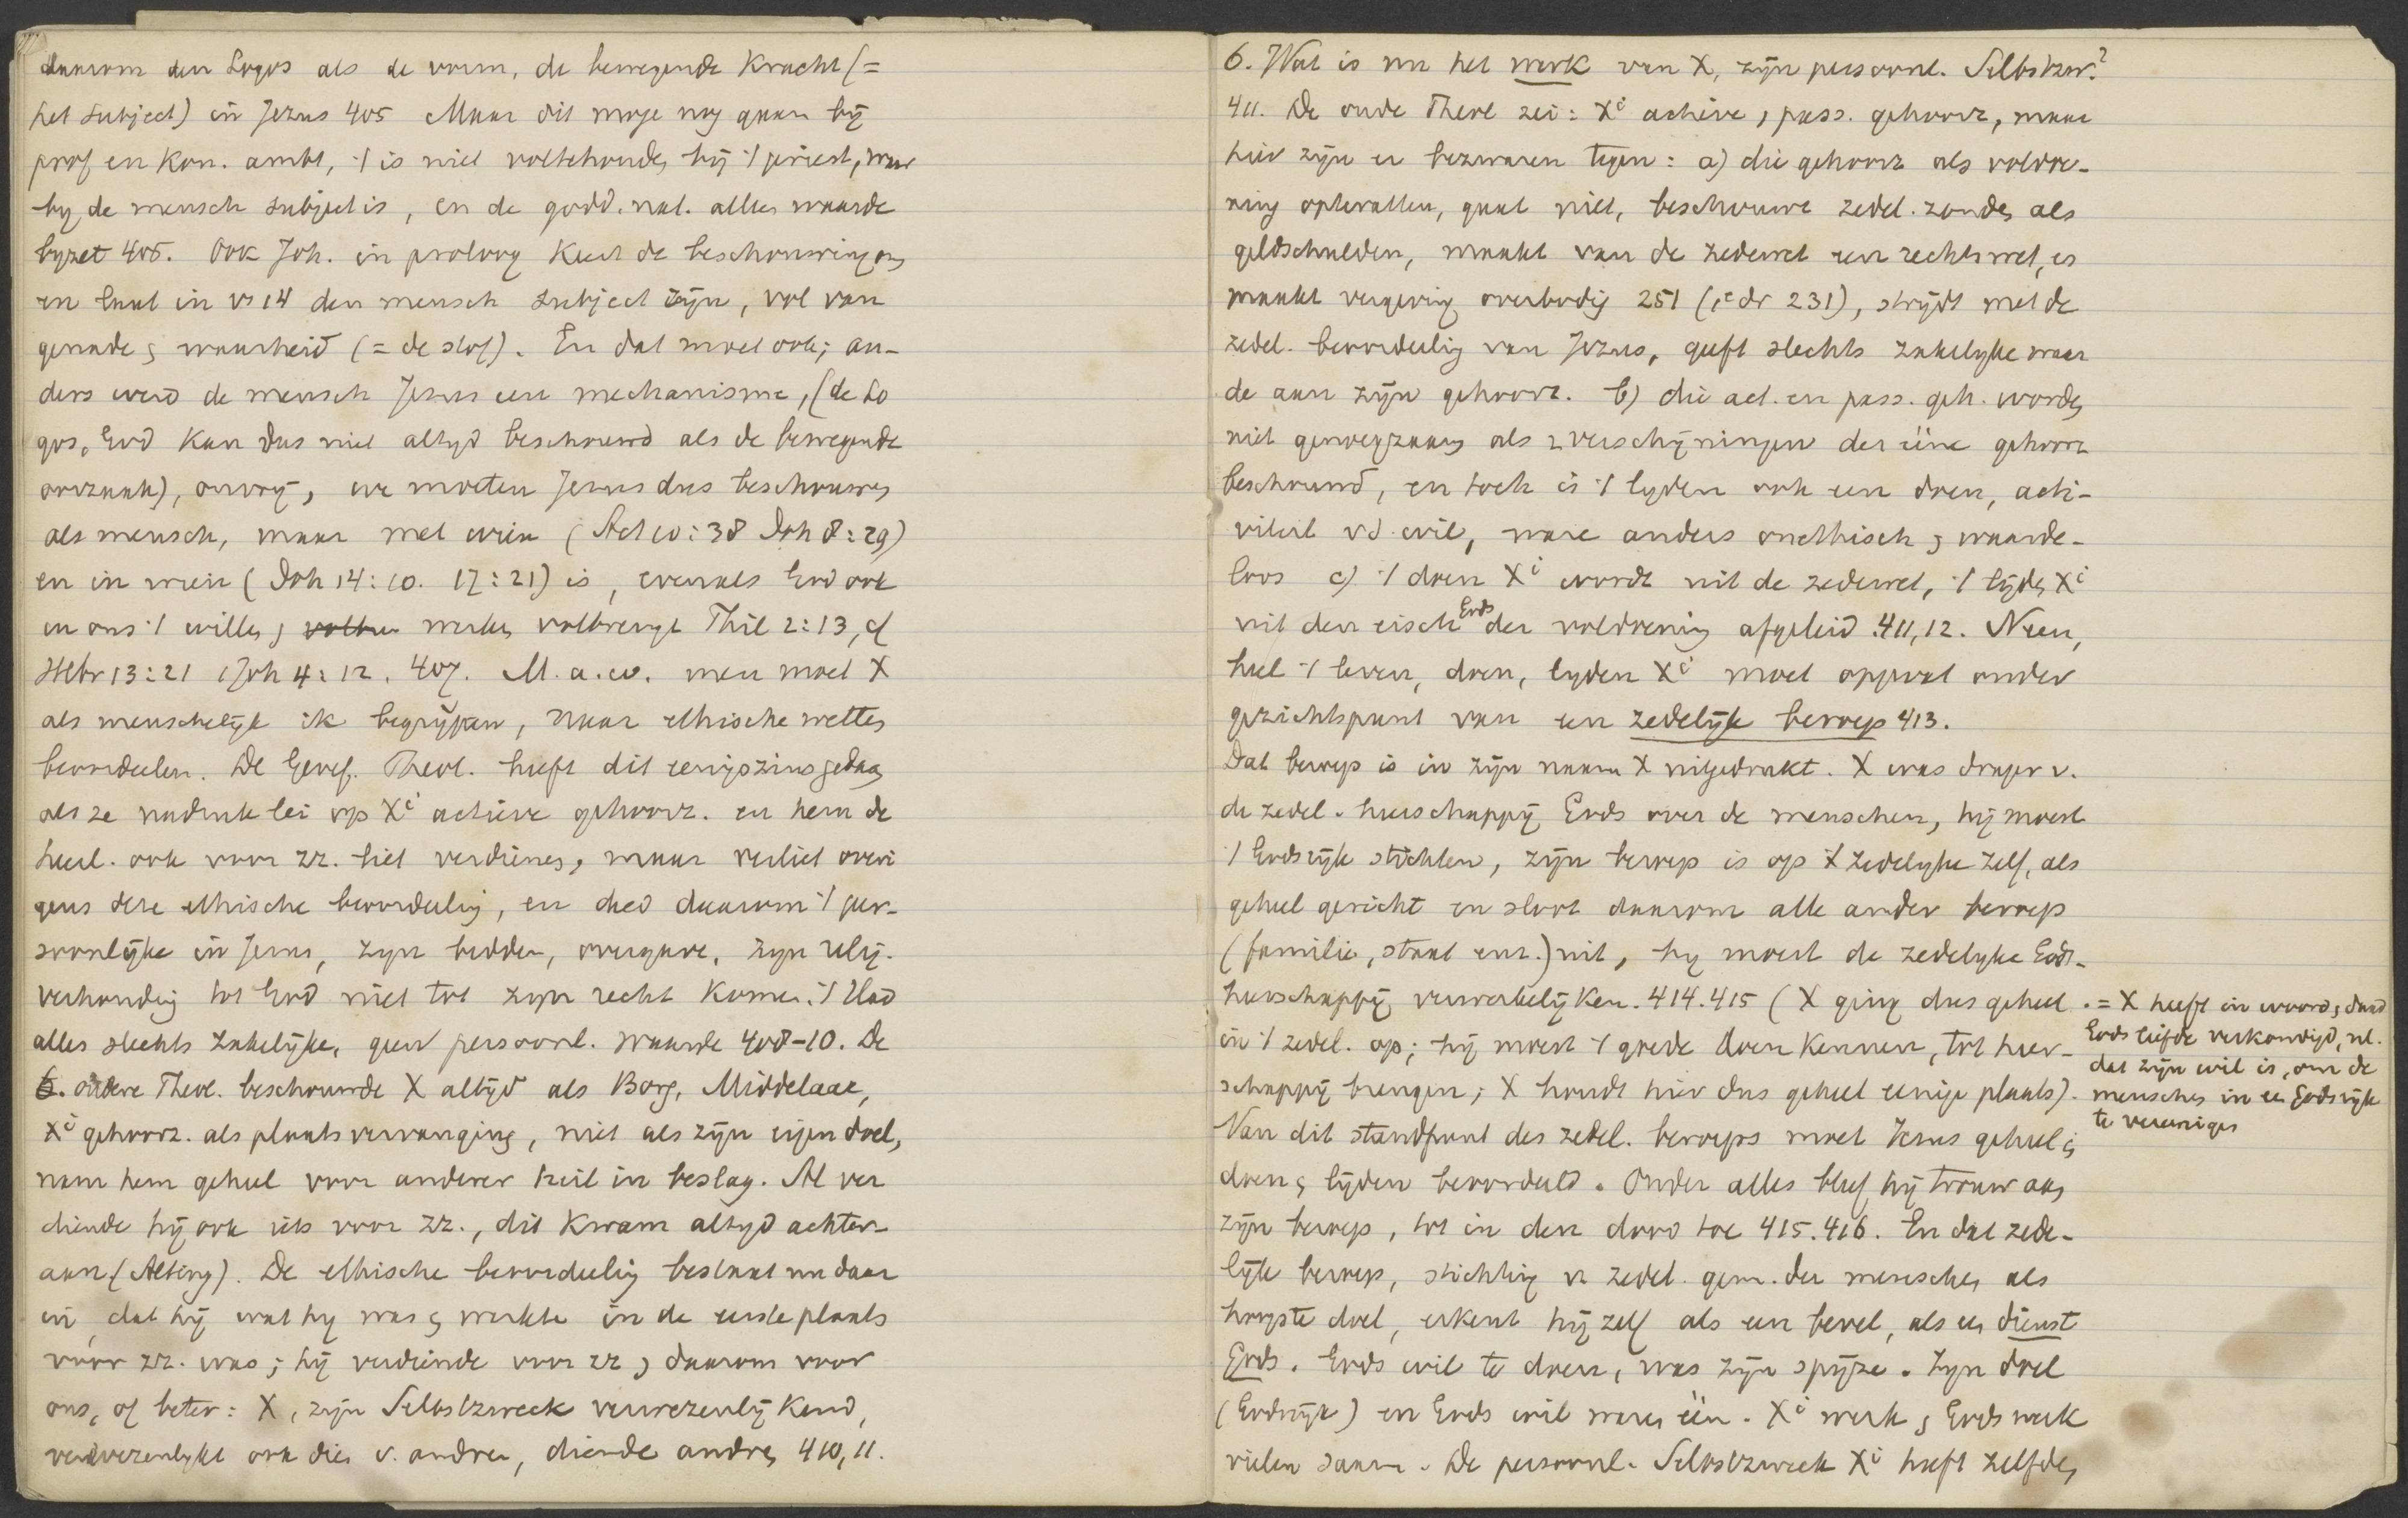 daarom den Logos als de vorm, de bewegende Kracht (=
het subject) in Jezus 405 Maar dit moge nog gaan bij
prof en Kon. ambt, 't is niet voldoende bij 't priest, waar
by de mensch subject is, en de godd. nat. alles waarde
byzet 406. Ook Joh. in proloog Keert de beschouwing om
en laat in vs 14 den mensch subject zijn, vol van
genade & waarheid (= de stof). En dat moet ook; an-
ders werd de mensch Jezus een mechanisme, (de Lo
gos, God Kan dus niet altyd beschouwd als de bewegende
oorzaak), onvrij, we moeten Jezus dus beschouwen
als mensch, maar met wien (Act 10:38 Joh 8:29)
en in wien (Joh 14:10. 17:21) is, evenals God ook
in ons 't willen & werken volbrengt Phil 2:13, cf
Hebr 13:21 1 Joh 4:12. 407. M. a. w. men moet X
als menschelijk ik begrijpen, naar ethische wetten
beoordeelen. De Geref. Theol. heeft dit eenigszins gedaan
als ze nadruk lei op Xi actieve gehoorz. en hem de
heerl. ook voor zz. liet verdienen, maar verliet overi
gens deze ethische beoordeeling, en deed daarom 't per-
soonlijke in Jezus, zyn bidden, overgave, zyn relig.
verhouding tot God niet tot zyn recht Komen. 't Had
alles slechts zakelijke, geen persoonl. waarde 408-10. De
oudere Theol. beschouwde X altijd als Borg, Middelaar,
Xi gehoorz. als plaatsvervanging, niet als zijn eigen doel,
nam hem geheel voor anderer heil in beslag. Al ver
diende hij ook iets voor zz., dit Kwam altyd achter-
aan (Alting). De ethische beoordeeling bestaat nu daar
in, dat hij wat hy was & werkte in de eerste plaats
vóór zz. was; hij verdiende voor zz & daarom voor
ons, of beter: X, zijn Selbstzweck verwezenlijkend,
verwezenlykt ook dien v. andren, diende andren 410,11.
6. Wat is nu het werk van X, zijn persoonl. Selbstzw.?
411. De oude Theol zei: Xi actieve, pass. gehoorz, maar
hier zijn er bezwaren tegen: a) die gehoorz als voldoe-
ning optevatten, gaat niet, beschouwt zedel. zonden als
geldschulden, maakt van de zedewet een rechtswet, es
maakt vergeving overbodig 251 (1e dr 231), strijdt met de
zedel. beoordeelig van Jezus, geeft slechts zakelyke waar
de aan zijn gehoorz. b) die act. en pass. geh. worden
niet genoegzaam als 2 verschijningen der ééne gehoorz
beschouwd, en toch is 't lyden ook een doen, acti-
viteit v d wil, ware anders onethisch & waarde-
loos c) 't doen Xi wordt uit de zedewet, 't lijden Xi
uit den eisch Gods der voldoening afgeleid. 411,12. Neen,
heel 't leven, doen, lyden Xi moet opgevat onder
gezichtspunt van een zedelijk beroep 413.
Dat beroep is in zijn naam X uitgedrukt. X was drager v.
de zedel. heerschappij Gods over de menschen, hij moest
't Godsrijk stichten, zijn beroep is op 't zedelyke zelf, als
geheel gericht en sloot daarom alle ander beroep
(familie, staat enz.) uit, hy moest de zedelyke Gods-
heerschappij verwerkelijken. 414. 415 (X ging dus geheel
in 't zedel. op; hij moest 't goede doen Kennen, tot heer-
schappij brengen; X houdt hier dus geheel eenige plaats).
= X heeft in woord & daad
Gods liefde verkondigd, nl.
dat zijn wil is, om de
menschen in een Godsrijk
te vereenigen
Van dit standpunt des zedel. beroeps moet Jezus geheel in
doen & lijden beoordeeld. Onder alles bleef hij trouw aan
zijn beroep, tot in den dood toe 415. 416. En dat zede-
lijk beroep, stichtig v. zedel. gem. der menschen als
hoogste doel, erkent hij zelf als een bevel, als een dienst
Gods. Gods wil te doen, was zijn spijze. Zyn doel
(Godsrijk) en Gods wil waren één. Xi werk & Gods werk
vielen saam. De persoonl. Selbstzweck Xi heeft zelfden